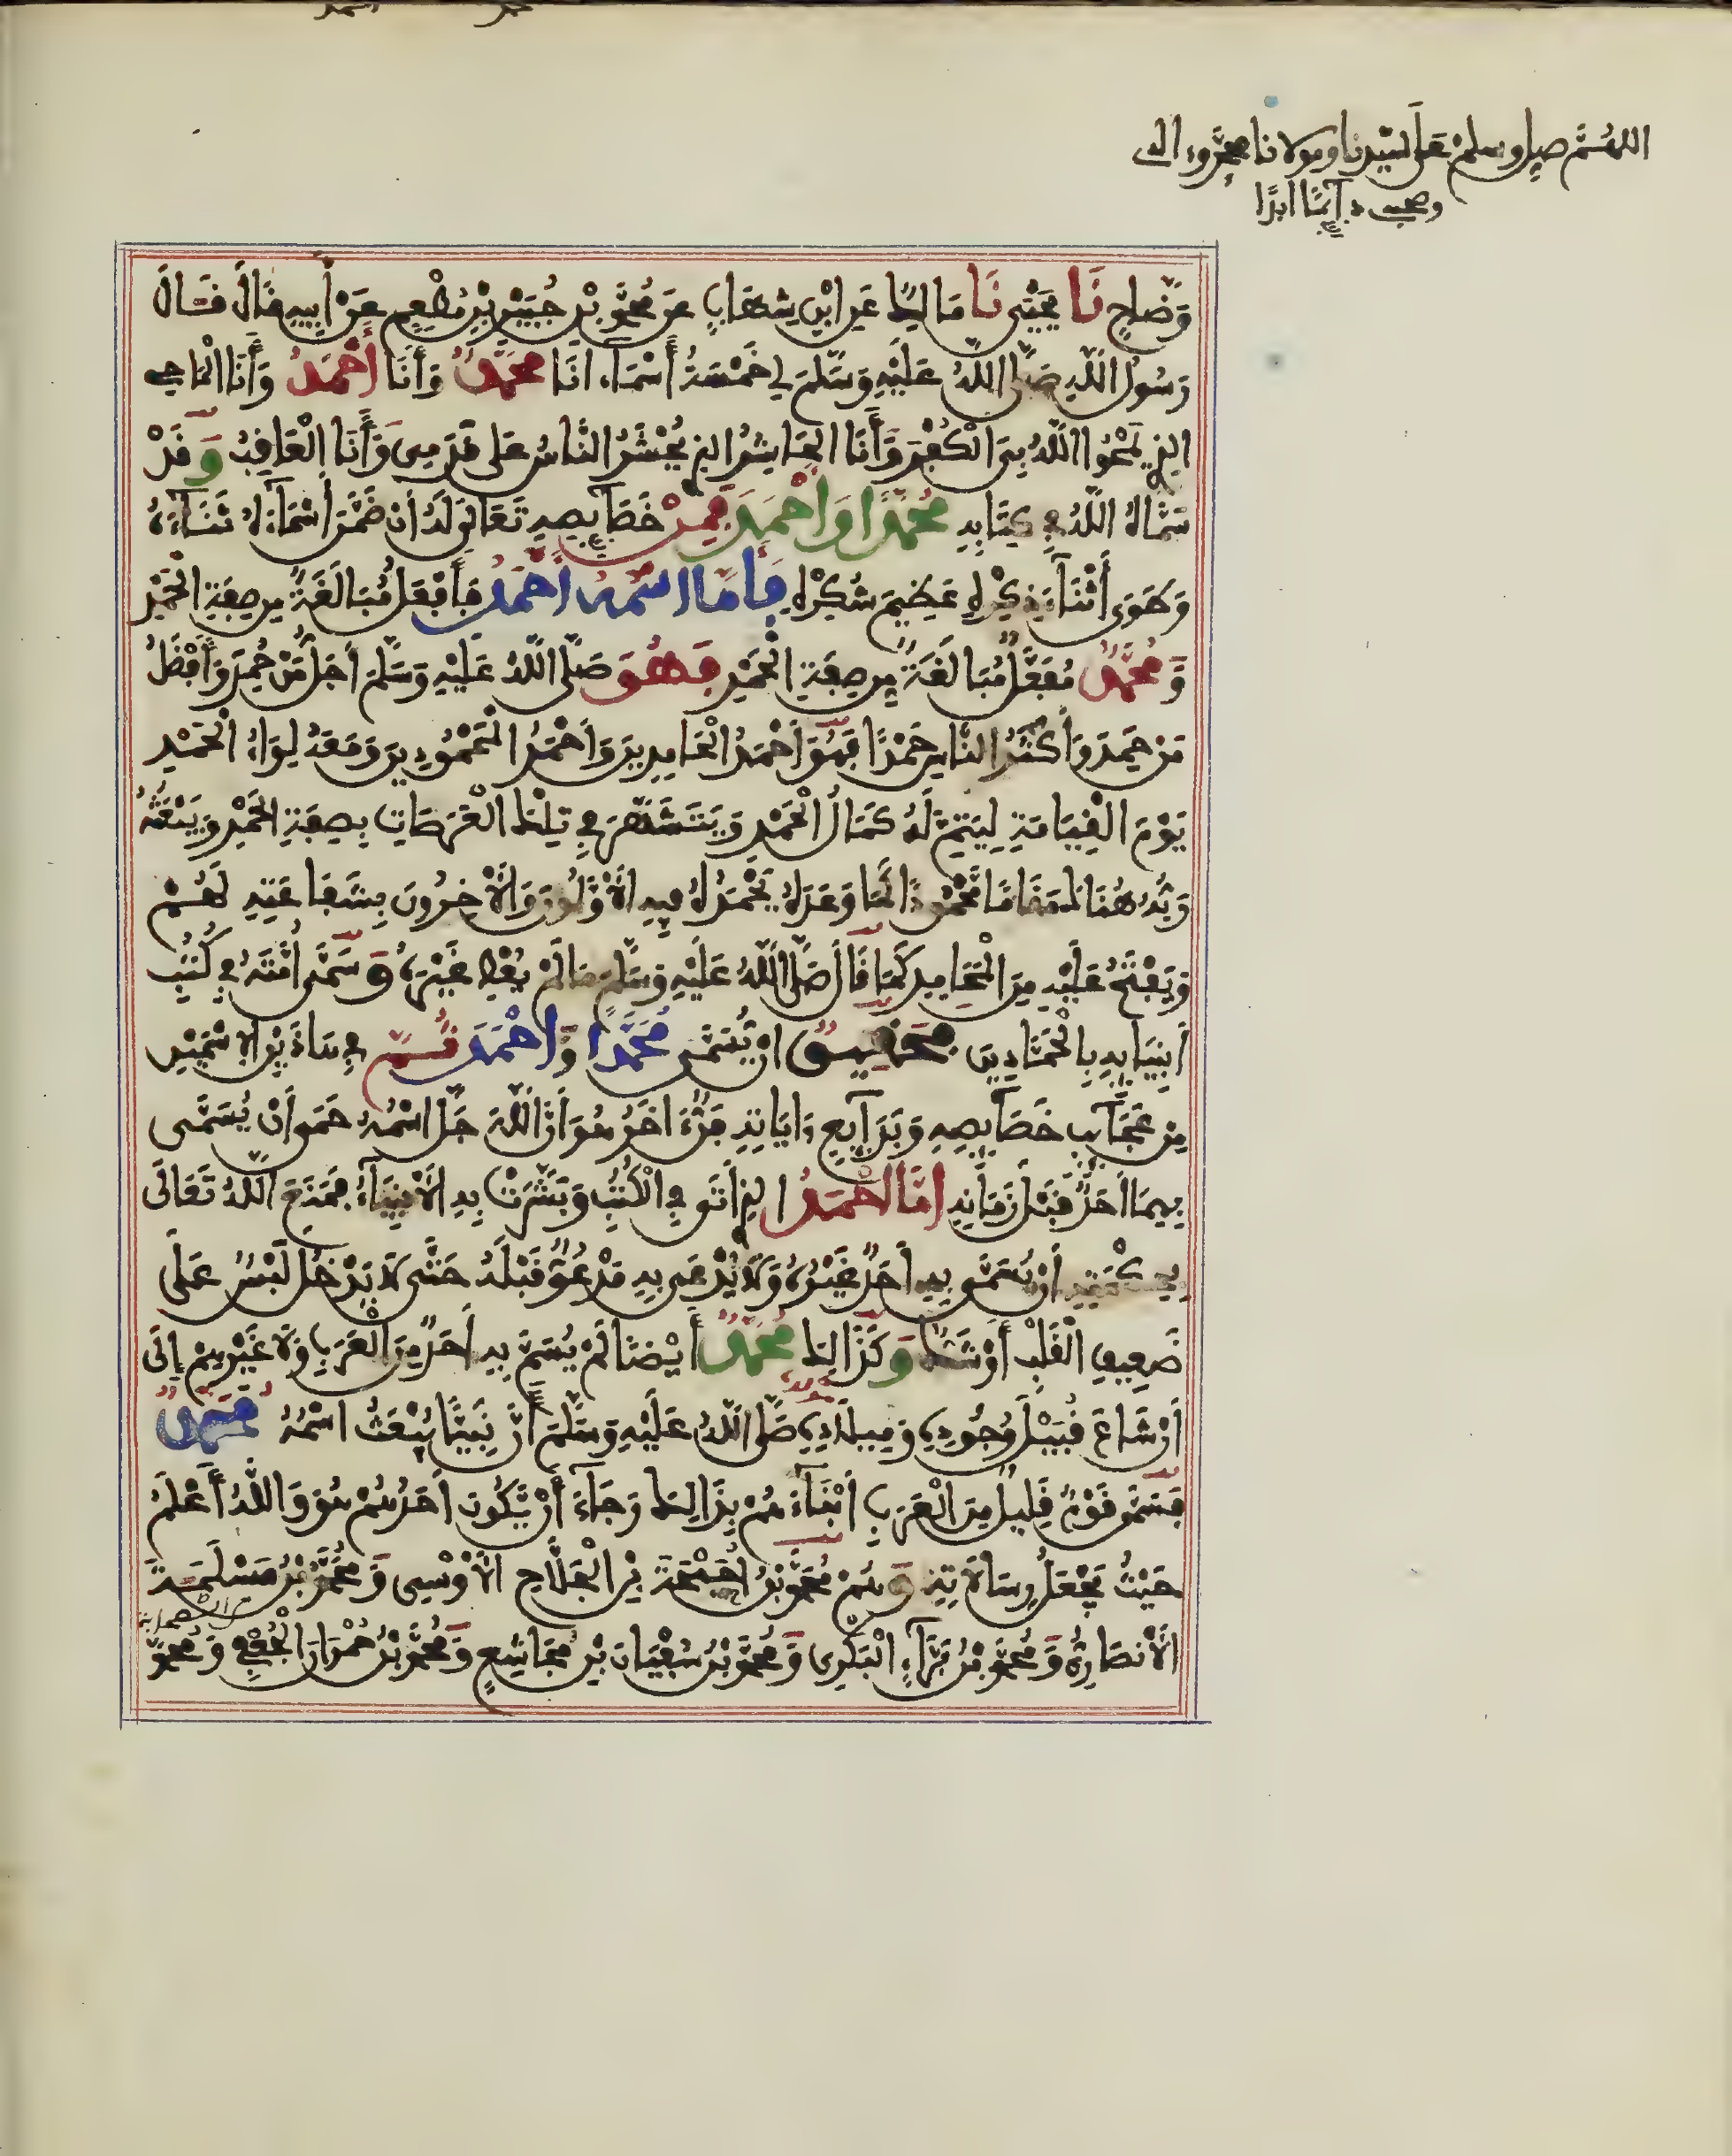 اللهم صل وسلم على سيدنا ومولانا محمد وءاله
وصحبه دآئما ابدا
وَضَّاحٍ نَا يَحْيَى نَا مَالِكٌ عَنِ ابْنِ شِهَابٍ عَنْ مُحَمَّدِ بْنِ جُبَيْرِ بْنِ مُطْعِمٍ عَنْ أَبِيهِ قَالَ قَالَ
رَسُولُ اللَّهِ صَلَّى اللَّهُ عَلَيْهِ وَسَلَّمَ لِي خَمْسَةُ أَسْمَاءٍ أَنَا مُحَمَّدٌ وَأَنَا أَحْمَدُ وَأَنَا الْمَاحِي
الذِي يَمْحُوا اللَّهُ بِيَ الْكُفْرَ وَأَنَا الْحَاشِرُ الذِي يُحْشَرُ النَّاسُ عَلَى قَدَمِي وَأَنَا الْعَاقِبُ وَقَدْ
سَمَّاهُ اللَّهُ فِي كِتَابِهِ مُحَمَّدًا وَأَحْمَدَ فَمِنْ خَصَآئِصِهِ تَعَالَى لَهُ أَنْ ضَمَّنَ أَسْمَآءَهُ ثَنَآءَهُ
وَطَوَى أَثْنَآءَ ذِكْرِهِ عَظِيمَ شُكْرِهِ فَأَمَّا اسْمُهُ أَحْمَدُ فَأَفْعَلُ مُبَالَغَةً مِنْ صِفَةِ الْحَمْدِ
وَمُحَمَّدٌ مُفَعَّلٌ مُبَالَغَةً مِنْ صِفَةِ الْحَمْدِ فَهُوَ صَلَّى اللَّهُ عَلَيْهِ وَسَلَّمَ أَجَلُّ مَنْ حُمِدَ وَأَفْضَلُ
مَنْ حَمِدَ وَأَكْثَرُ النَّاسِ حَمْدًا فَهُوَ أَحْمَدُ الْحَامِدِينَ وَأَحْمَدُ الْمَحْمُودِينَ وَمَعَهُ لِوَاءُ الْحَمْدِ
يَوْمَ الْقِيَامَةِ لِيَتِمَّ لَهُ كَمَالُ الْحَمْدِ وَيَتَشَهَّرَ فِي تِلْكَ الْعَرَصَاتِ بِصِفَةِ الْحَمْدِ وَيَبْعَثُهُ
رَبُّهُ هُنَاكَ مَقَامًا مَحْمُودًا كَمَا وَعَدَهُ يَحْمَدُهُ فِيهِ الْأَوَّلُونَ وَالْآخِرُونَ بِشَفَاعَتِهِ لَهُمْ
وَيَفْتَحُ عَلَيْهِ مِنَ الْمَحَامِدِ كَمَا قَالَ صَلَّى اللَّهُ عَلَيْهِ وَسَلَّمَ مَا لَمْ يُعْطَ غَيْرُهُ وَسَمَّى أُمَّتَهُ فِي كُتُبِ
أَنْبِيَآئِهِ بِالْحَمَّادِينَ فَحَقِيقٌ أَنْ يُسَمَّى مُحَمَّدًا وَأَحْمَدَ ثُمَّ فِي هَاذَيْنِ الِاسْمَيْنِ
مِنْ عَجَآئِبِ خَصَآئِصِهِ وَبَدَآئِعِ ءَايَاتِهِ فَنٌّ ءَاخَرُ هُوَ أَنَّ اللَّهَ جَلَّ اسْمُهُ حَمَى أَنْ يُسَمَّى
بِهِمَا أَحَدٌ قَبْلَ زَمَانِهِ أَمَّا أَحْمَدُ الذِي أَتَى فِي الْكُتُبِ وَبَشَّرَتْ بِهِ الْأَنْبِيَآءُ فَمَنَعَ اللَّهُ تَعَالَى
بِحِكْمَتِهِ أَنْ يُسَمَّى بِهِ أَحَدٌ غَيْرُهُ وَلَا يُدْعَى بِهِ مَدْعُوٌّ قَبْلَهُ حَتَّى لَا يَدْخُلَ لَبْسٌ عَلَى
ضَعِيفِ الْقَلْبِ أَوْ شَكٌّ وَكَذَالِكَ مُحَمَّدٌ أَيْضًا لَمْ يُسَمَّ بِهِ أَحَدٌ مِنَ الْعَرَبِ وَلَا غَيْرِهِمْ إِلَى
أَنْ شَاعَ قُبَيْلَ وُجُودِهِ وَمِيلَادِهِ صَلَّى اللَّهُ عَلَيْهِ وَسَلَّمَ أَنَّ نَبِيًّا يُبْعَثُ اسْمُهُ مُحَمَّدٌ
فَسَمَّى قَوْمٌ قَلِيلٌ مِنَ الْعَرَبِ أَبْنَآءَهُمْ بِذَالِكَ رَجَآءَ أَنْ يَكُونَ أَحَدُهُمْ هُوَ وَاللَّهُ أَعْلَمُ
حَيْثُ يَجْعَلُ رِسَالَاتِهِ وَهُمْ مُحَمَّدُ بْنُ أُحَيْحَةَ بْنِ الْجُلَاحِ الْأَوْسِي وَمُحَمَّدُ بْنُ مَسْلَمَةَ
الْأَنْصَارِيُّ وَمُحَمَّدُ بْنُ بَرَآءٍ الْبَكْرِي وَمُحَمَّدُ بْنُ سُفْيَانَ بْنِ مُجَاشِعٍ وَمُحَمَّدُ بْنُ حُمْرَانَ الْجُعْفِي وَمُحَمَّدُ